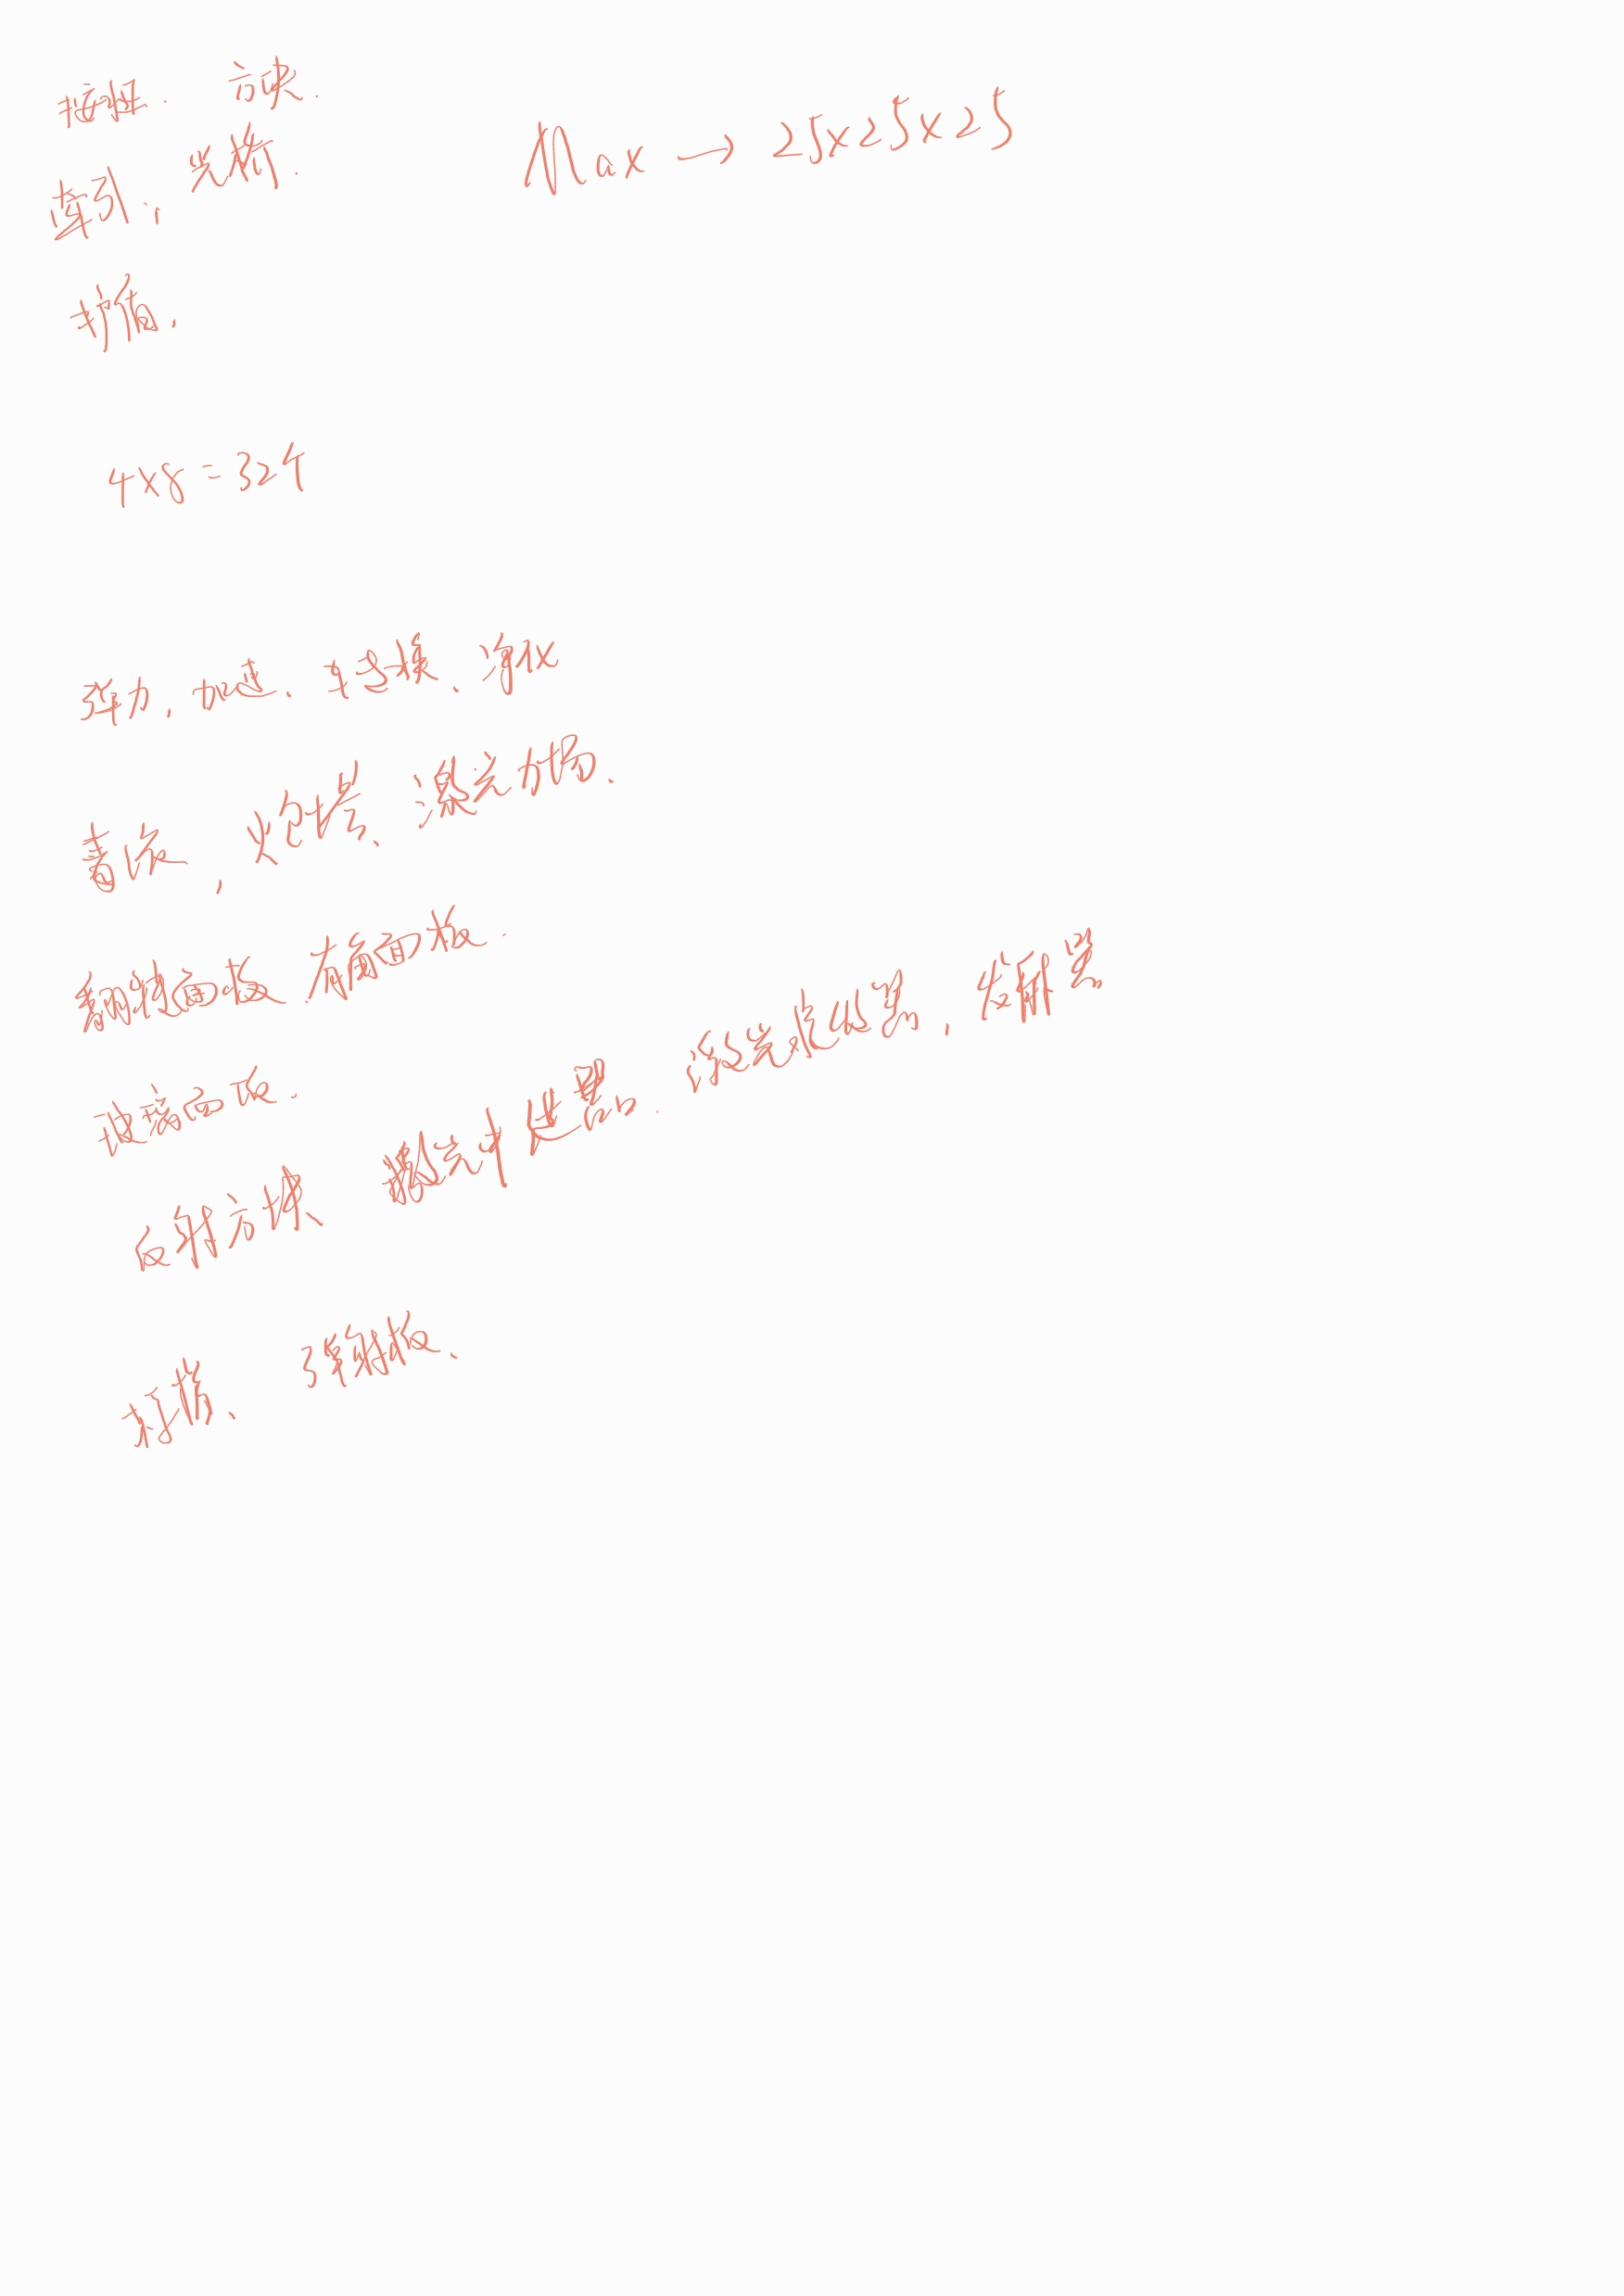 按钮. 方块.
Max → 25x25x25
牵引, 光桥.
4x8=32个
弹力, 加速、转换、净化
毒液, 炮塔、激光力场、
翻转面板、有角面板.
玻璃面板.
反射方块、激光中继器. 激光接收器, 发射器
灯塔、 弹射板、